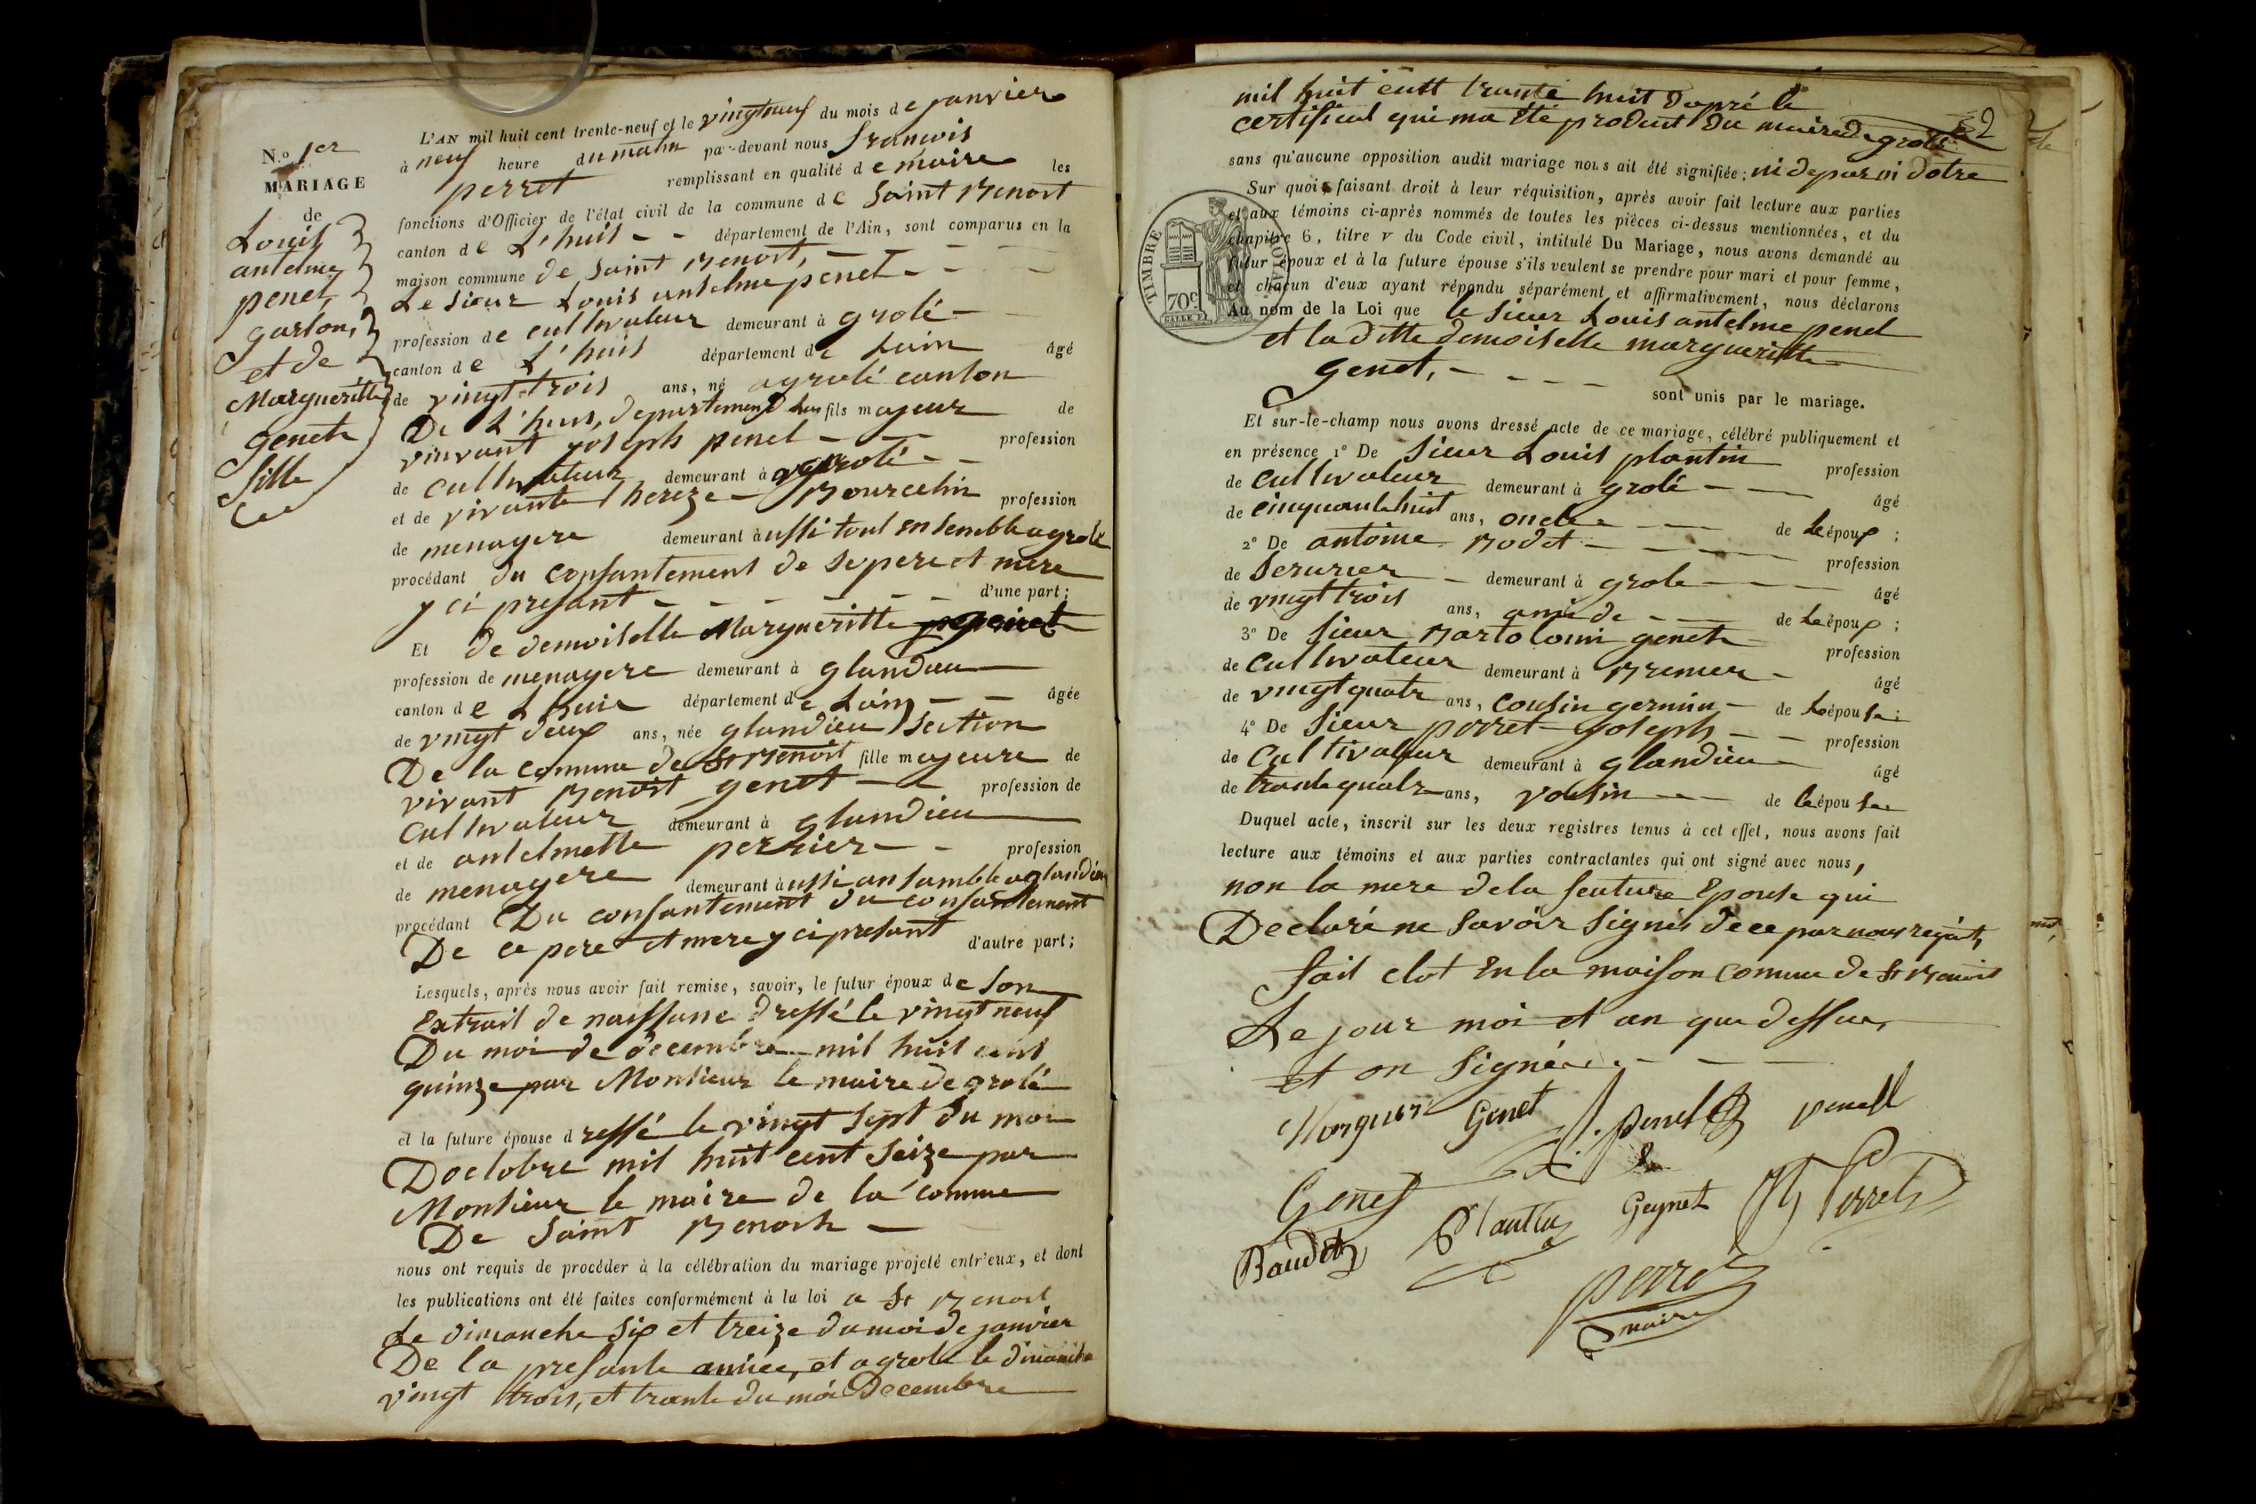 N.o 1er
MARIAGE
de
Louis
antelme
penet
garson,
et de
Margueritte
genet
fille
L'AN mil huit cent trente-neuf et le vingtneuf du mois de janvier
à neuf heure du matin par-devant nous francois
perret remplissant en qualité de maire les
fonctions d'Officier de l'état civil de la commune de Saint Benoit
canton de L'huis - - département de l'Ain, sont comparus en la
maison commune de Saint Benoit, -
Le Sieur Louis antelme penet - -
profession de cultivateur demeurant à grolé -
canton de L'huis département de Lain âgé
de vingt-trois ans, né a grolé canton
De L'huis, departement Lain fils majeur de
vinvant joseph penet - - profession
de cultivateur demeurant à grolé - -
et de vivante thereze - Bourcelin profession
de menagere demeurant à ussi tout ensemble a grolé
procédant du consantement de se pere et mere
y ci presant - - - - - - d'une part;
Et de demoiselle Margueritte genet
profession de menagere demeurant à glandieu
canton de L'huis département de Lain - - âgée
de vingt deux ans, née glandieu section
De la comune de St Benoit fille majeure de
vivant Benoit genet - profession de
cultivateur demeurant à glandieu
et de antelmette perrier - - profession
de menagere demeurant à ussi ansamble a glandieu
procédant Du consantement du consantement
De ce pere et mere y ci presant d'autre part;
Lesquels, après nous avoir fait remise, savoir, le futur époux de son
Extrait de naissanse dressé le vingt neuf
Du moi de decembre mil huit cent
quinze par Monsieur le maire de grolé
et la future épouse dressé le vingt sept du moi
Doctobre mil huit cent seize par
Monsieur le maire de la comme
De Saint Benoit -
nous ont requis de procéder à la célébration du mariage projeté entr'eux, et dont
les publications ont été faites conformément à la loi a St Benoit
Le dimanche six et treize du moi de janvier
De la presante année, et a grolé le dimanche
vingt trois, et trante du moi Decembre
2
mil huit cent trante huit dapré le
certificat qui ma été produit du maire de grolé
sans qu'aucune opposition audit mariage nous ait été signifiée; ni de par ni dotre
Sur quoi faisant droit à leur réquisition, après avoir fait lecture aux parties
et aux témoins ci-après nommés de toutes les pièces ci-dessus mentionnées, et du
chapitre 6, titre v du Code civil, intitulé Du Mariage, nous avons demandé au
futur époux et à la future épouse s'ils veulent se prendre pour mari et pour femme,
et chacun d'eux ayant répondu séparément et affirmativement, nous déclarons
TIMBRE ROYAL
70c
Au nom de la Loi que le sieur Louis antelme penet
et la ditte demoiselle margueritte
genet, - - - - sont unis par le mariage.
Et sur-le-champ nous avons dressé acte de ce mariage, célébré publiquement et
en présence 1° De Sieur Louis plantin profession
de cultivateur demeurant à grolé - - âgé
de cinquante huit ans, oncle - - de Leépoux;
2° De antoine Bodet - - - - profession
de Serurier - demeurant à grole - - âgé
de vingt trois ans, ami de - - de Leépoux;
3° De Sieur Bartolomi genet profession
de cultivateur demeurant à Bremier - âgé
de vingt quatr ans, cousin germin - de Leépouse;
4° De Sieur perret joseph - - profession
de Cultivateur demeurant à glandieu âgé
de trante quatr ans, voisin - - de leépouse
Duquel acte, inscrit sur les deux registres tenus à cet effet, nous avons fait
lecture aux témoins et aux parties contractantes qui ont signé avec nous,
non la mere de la feuture Epouse qui
Declaré ne savoir signés de ce par nous requit,
fait clot En la maison comune de St Benoit
Le jour moi et an que dessus,
et on Signé - - -
Marguerit Genet J. penet penet
Genet Plantin Geynet Jh Perret
Baudet
perret
maire